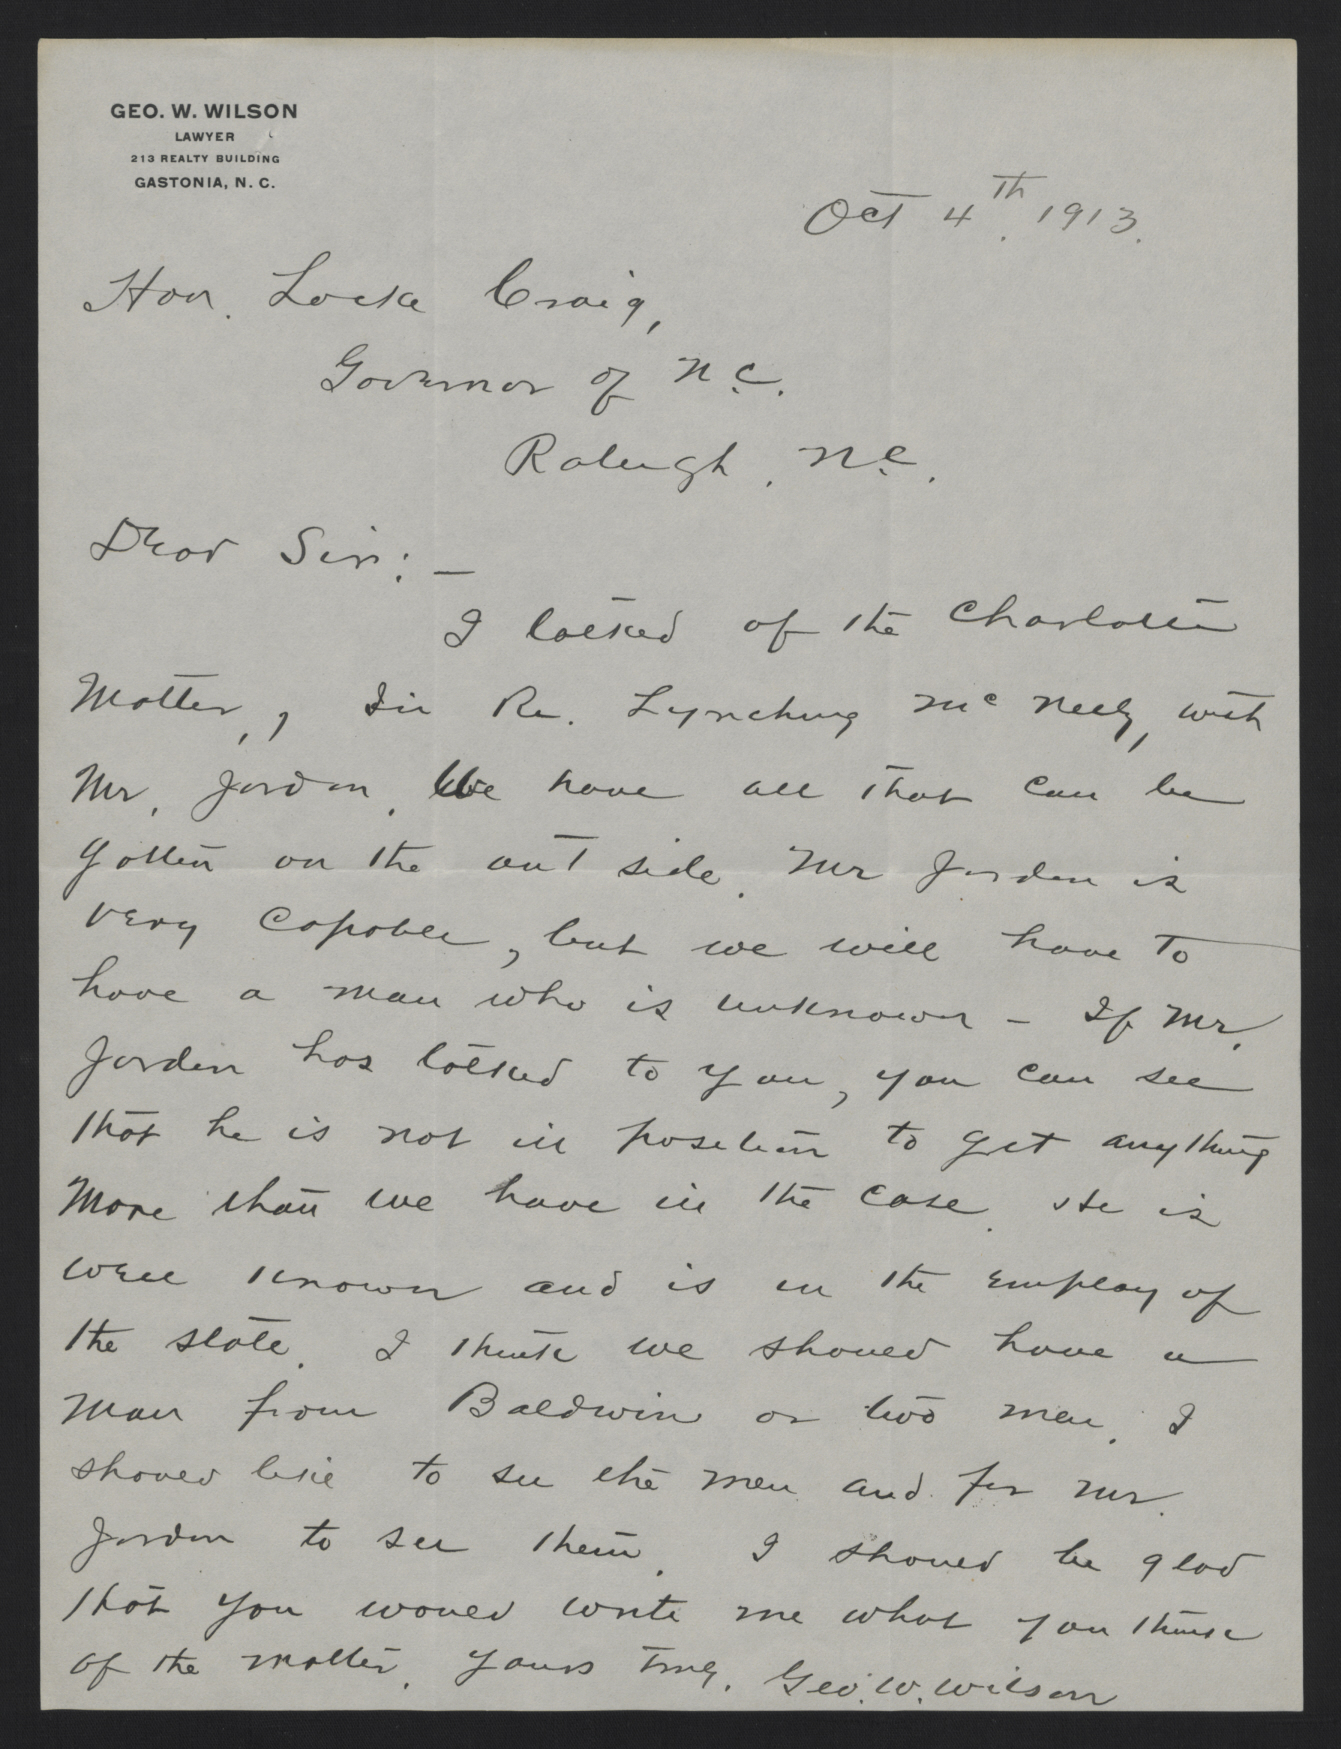 GEO. W. WILSON
LAWYER
213 REALTY BUILDING
GASTONIA, N. C.
Oct 4th. 1913.
Hon. Locke Craig,
Governor of N.C.
Raleigh, N.C.
Dear Sir: —
I talked of the Charlotte
Matter, In Re. Lynching McNeely, with
Mr. Jordan. We have all that can be
gotten on the out side. Mr Jordan is
very capable, but we will have to
have a man who is unknown – If Mr.
Jordan has talked to you, you can see
that he is not in position to get anything
more than we have in the case. He is
well known and is in the employ of
the state. I think we should have a
man from Baldwin or two men. I
should like to see the men and for Mr.
Jordan to see them. I should be glad
that you would write me what you think
of the matter. Yours Truly, Geo. W. Wilson